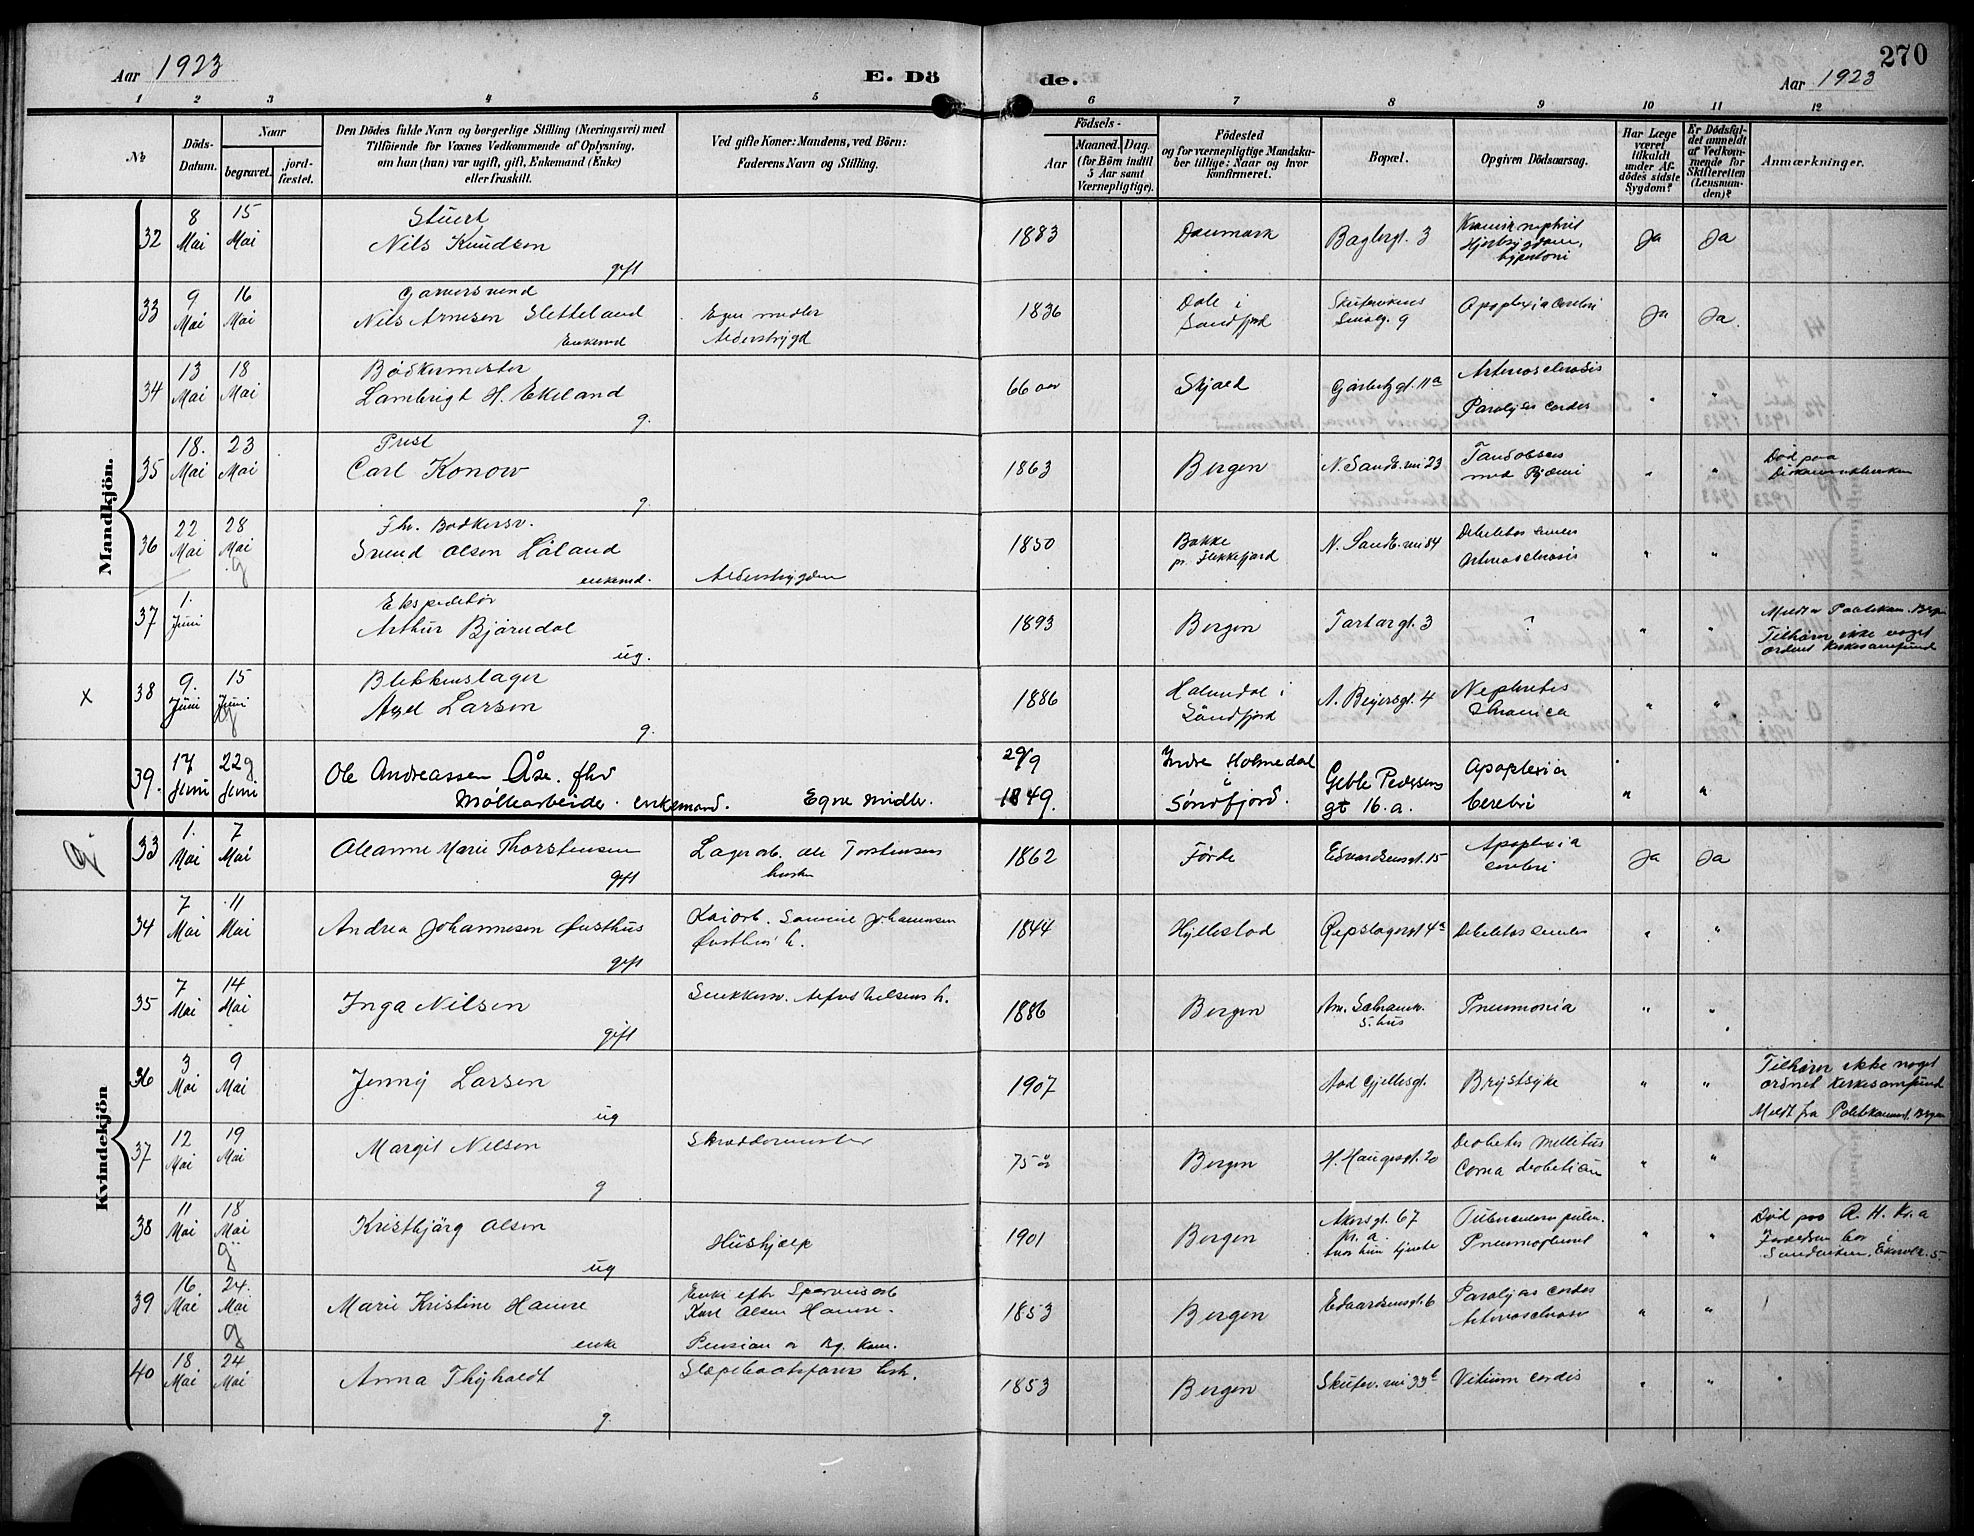 270
Aar 1923
E. Dö de.
Aar 1923
1 2 3 4 5 6 7 8 9 10 11 12
No.
Döds-Datum.
Naar
begravet.
jord-fæstet.
Den Dödes fulde Navn og borgerlige Stilling (Næringsvei) med
Tilföiende for Voxnes Vedkommende af Oplysning,
om han (hun) var ugift, gift, Enkemand (Enke)
eller fraskilt.
Ved gifte Koner: Mandens, ved Börn:
Faderens Navn og Stilling.
Födsels-
Aar
Maaned. Dag.
(for Börn indtil
5 Aar samt
Værnepligtige).
Födested
og for værnepligtige Mandska-
ber tillige: Naar og hvor
konfirmeret.
Bopæl.
Opgiven Dödsaarsag.
Har Læge
været
tilkaldt
under Af-
dödes sidste
Sygdom?
Er Dödsfal-
det anmeldt
af Vedkom-
mende for
Skifteretten
(Lensman-
den)?
Anmærkninger.
Mandkjön.
32 8 Mai 15 Mai Stuert
Nils Knudsen
gift
1883 Danmark Baglergt. 3 Kronisk nephrit
Hjertesygdom,
hypertoni
Ja Ja
33 9 Mai 16 Mai Garversvend
Nils Arnesen Sletteland
Enkemd
Egne midler
Alderstrygd
1836 Dale i
Sundfjord
Skutevikens
Smalg. 9
Apoplexia Cerebri Ja Ja
34 13 Mai 18 Mai Bödkermester
Lambrigt H. Ekeland
g.
66 aar Skjold Garbergt. 11a Arteriosclerosis
Paralysis cordis " "
35 18. Mai 23 Mai Prest
Carl Konow
g.
1863 Bergen N. Sandv.vei 23
" "
Död paa
36 22 Mai 28 Mai g
Fhv. Bödkersv.
Svend Olsen Löland
enkemd. Alderstrygden
1850 Bakke
pr. Flekkefjord
N. Sandv.vei 84
Arteriosclerosis " "
37 1. Juni
Ekspeditör
Arthur Bjørndal
ug.
1893 Bergen Tartargt. 3 ? " "
Tilhörer ikke noget
ordnet kirkesamfund
x 38 9. Juni 15 Juni g
Blikkenslager
Axel Larsen
g.
1886 Holmedal i
Söndfjord
A. Beyersgt. 4 Nephritis
Chronica " "
39. 17 Juni 22 g Juni
Ole Andreassen Åse. fhv
Møllearbeider. enkemand. Egne midler.
29/9
1849. Indre Holmedal
i
Søndfjord.
Geble Pedersens
gt 16.a.
Apoplexia
Cerebri " "
Kvindekjön
g. 33 1. Mai 7 Mai Oleanne Marie Thorstensen
gift
Lagerarb. Ole Torstensens
hustru
1862 Förde Edvardsensgt. 15 Apoplexia
cerebri Ja Ja
34 7 Mai 11 Mai Andrea Johannesen Østhus
gift
1844 Hyllestad Repslagergt 4a " "
35 7 Mai 14 Mai Inga Nilsen
gift
1886 Bergen
Pneumonia " "
36 3 Mai 9 Mai Jenny Larsen
ug
1907 Aad Gjellesgt. Brystsyke " "
Tilhörer ikke noget
ordnet kirkesamfund
Meldt fra Politikammet. Bergen
37 12 Mai 19 Mai Margit Nilsen
g
Skreddermester
75 år Bergen H. Haugesgt. 20 Diabetes mellitus
Coma diabeticum " "
38 11 Mai 18 Mai g
Kristbjørg Olsen
ug
Hushjælp
1901 Bergen Akersgt. 67
Kr. a
hvor hun tjente
Tuberculose pulm.
" "
Död paa R. H. Kr.a
Forældre bor i
39 16 Mai 24. Mai g
Marie Kristine Hamre
enke
Enke efter Sporveisarb
Karl Olsen Hamre.
Pension av Bg. Kom.
1853 Bergen Edvardsensgt. 6 Paralysis cordis
" "
40 18. Mai 24 Mai Anna Thyholdt
g.
1853 Bergen Skutev.vei 33b Vitium cordis " "